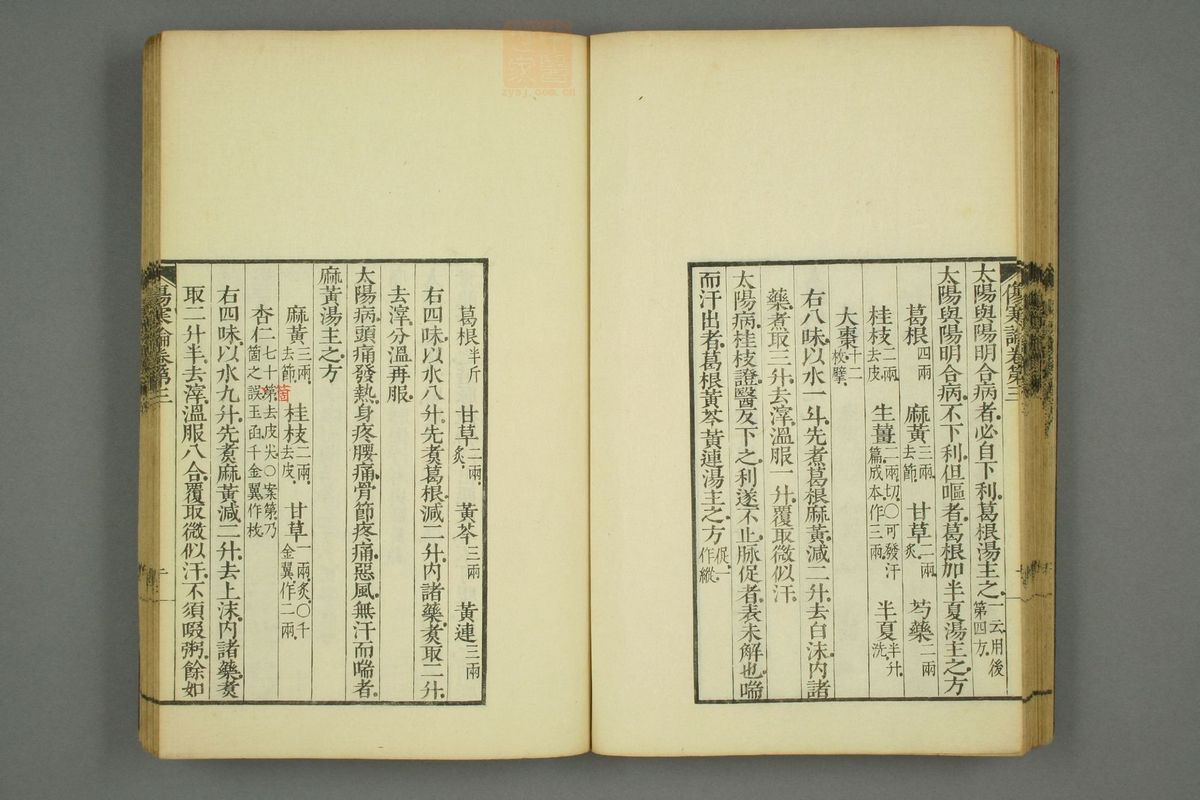 太陽與陽明合病者必自下利葛根湯主之一云用後第四方
太陽與陽明合病不下利但嘔者葛根加半夏湯主之方
葛根四兩 麻黃三兩去節 甘草二兩炙 芍藥二兩
桂枝二兩去皮 生薑二兩切○可發汗篇成本作三兩 半夏半升洗
大棗十二枚擘
右八味以水一斗先煮葛根麻黃減二升去白沫內諸
藥煮取三升去滓溫服一升覆取微似汗
太陽病桂枝證醫反下之利遂不止脉促者表未解也喘
而汗出者葛根黃芩黃連湯主之方促一作縱
傷寒論卷第三
葛根半斤 甘草二兩炙 黃芩三兩 黃連三兩
右四味以水八升先煑葛根減二升內諸藥煑取二升
去滓分溫再服
太陽病頭痛發熱身疼腰痛骨節疼痛惡風無汗而喘者
麻黃湯主之方
麻黃三兩去節 桂枝二兩去皮 甘草一兩炙○千金翼作二兩
杏仁七十第去皮尖○案第乃箇之誤玉函千金翼作枚
箇
右四味以水九升先煑麻黃減二升去上沫內諸藥煑
取二升半去滓溫服八合覆取微似汗不須啜粥餘如
傷寒論卷第三
zysj.com.cn